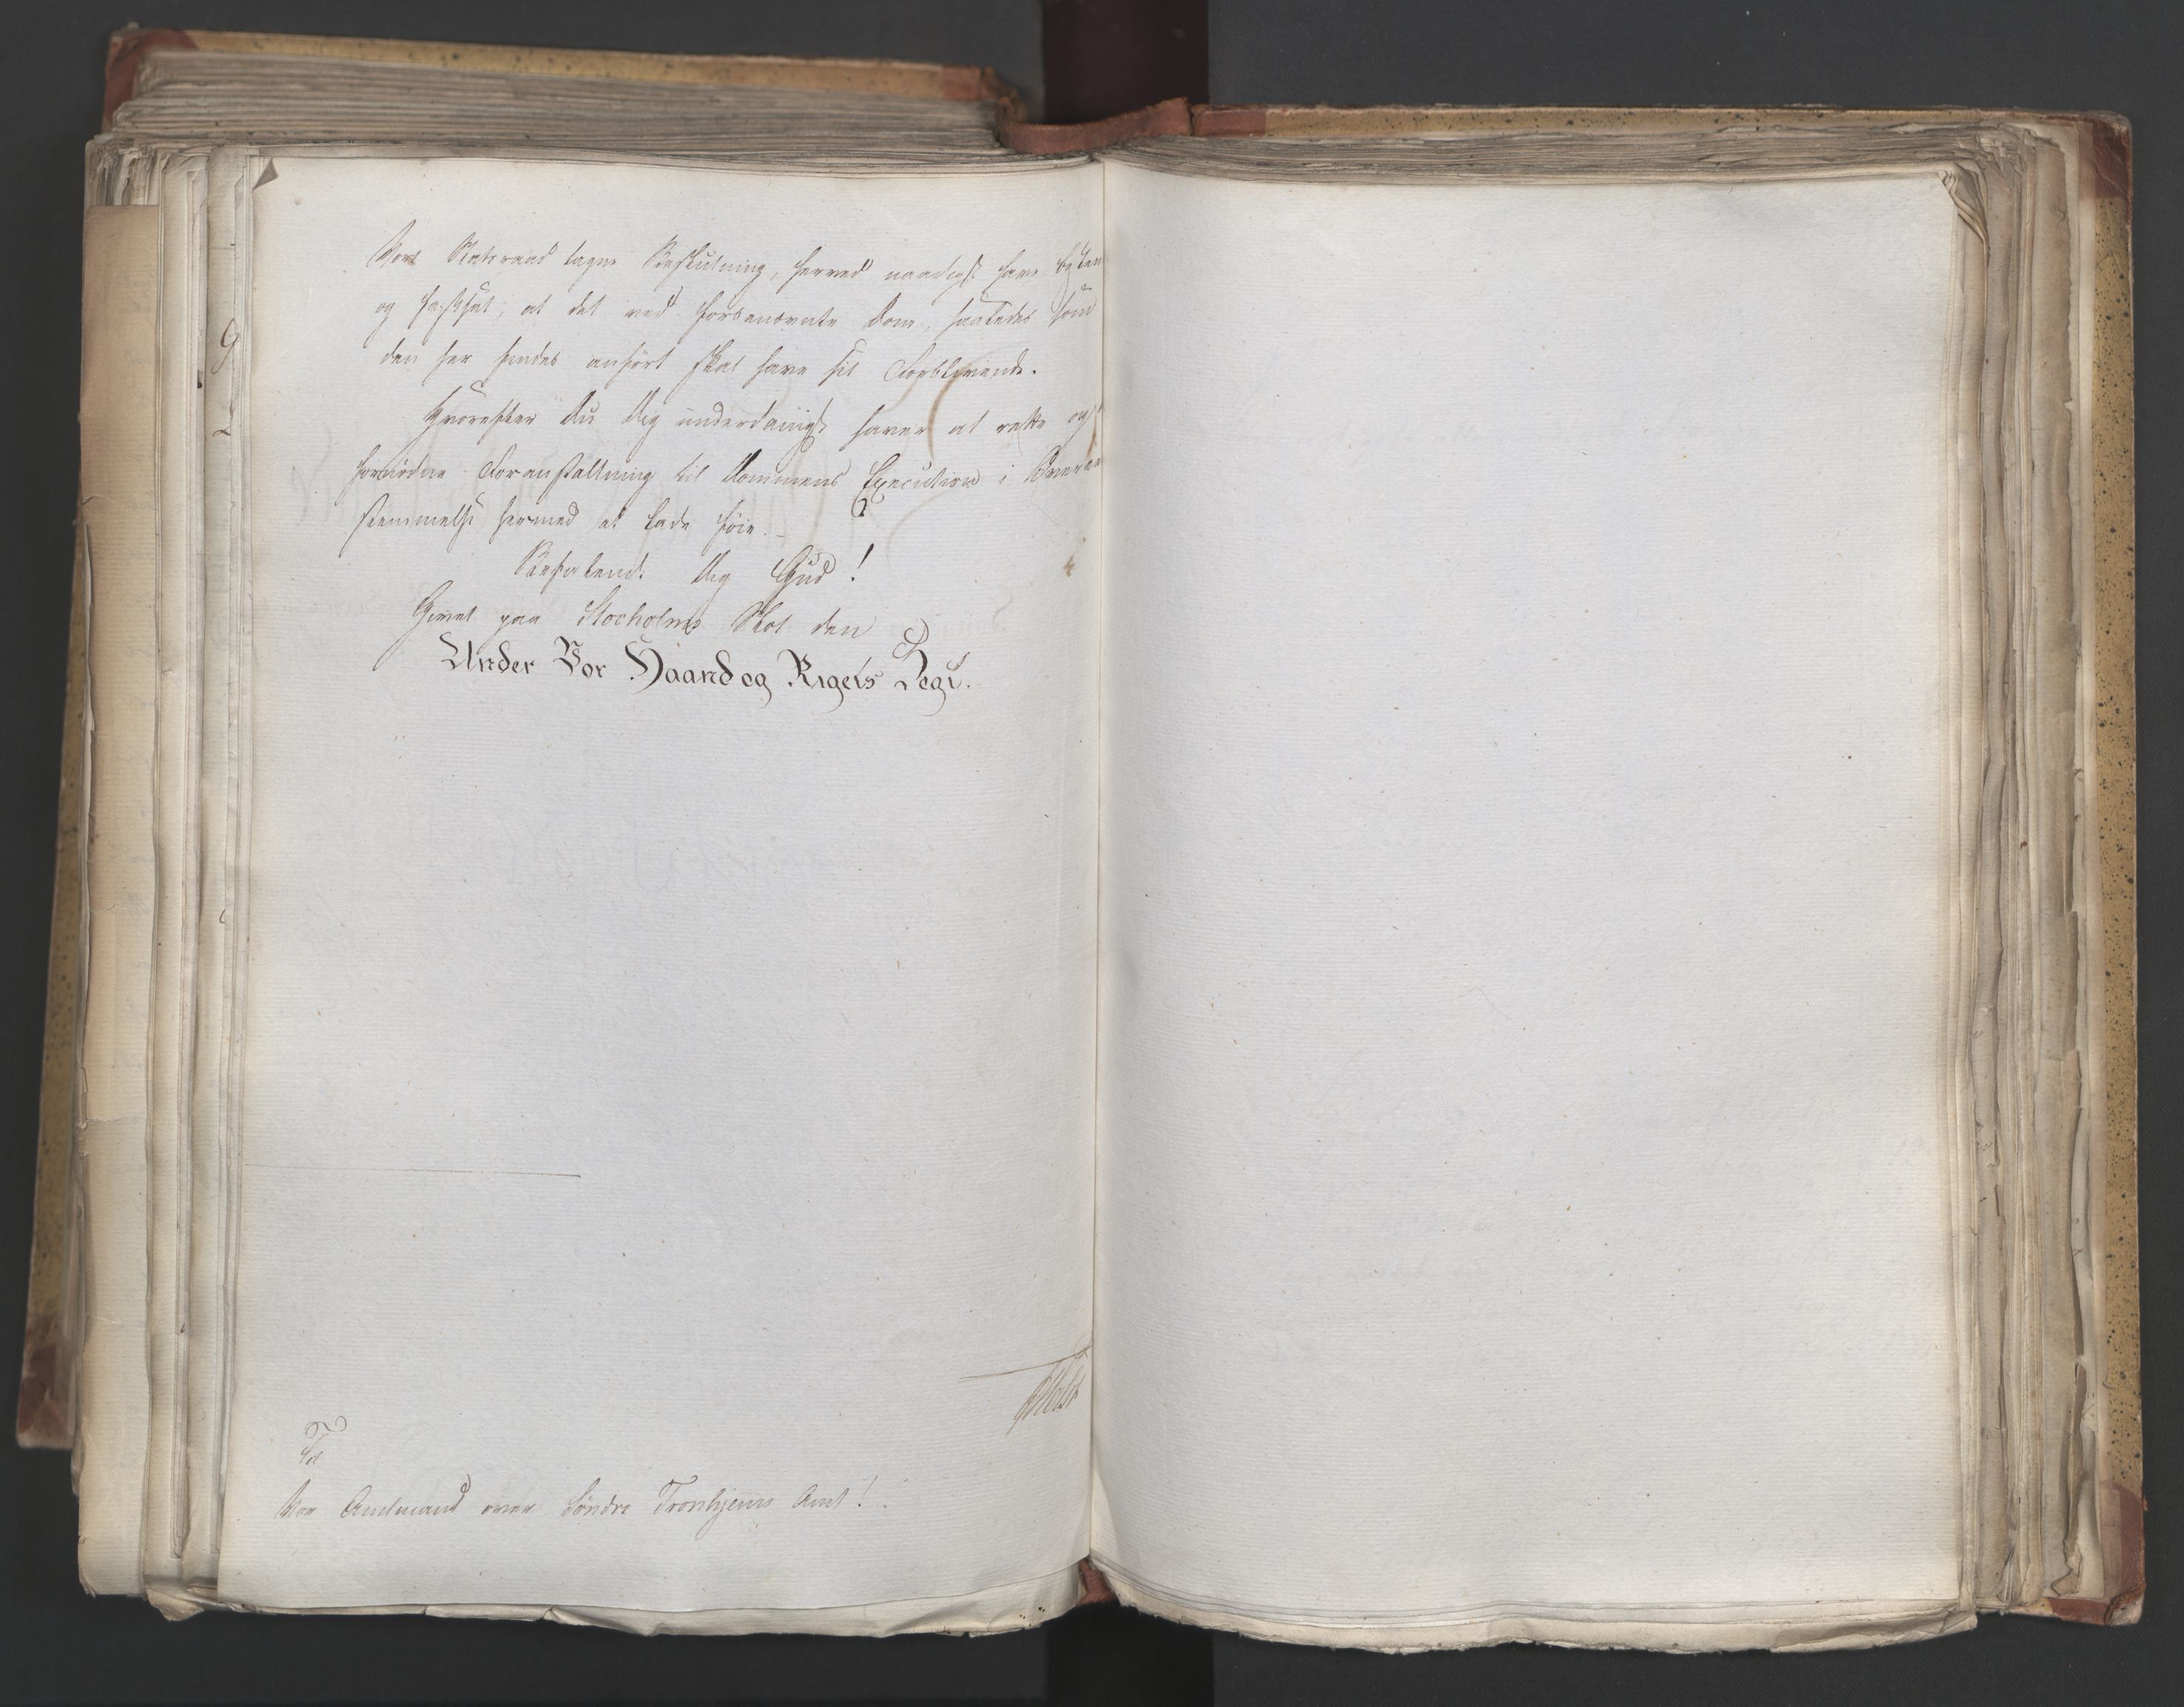 Vort Statsraad tagne Beslutning, herved naadigst have
og fastsat, at det ved forbenævnte Dom, saaledes som
den her findes anført skal have sit Forblivende.
Hvorefter Du Dig underdanigst haver at rette og
fornødne Foranstaltning til Dommens Execution i Overeens
stemmelse hermed at lade føie.
Befalende Dig Gud!
Givet paa Stocholms Slot den
Under Vor Haand og Rigets Segl.
Til
Vor Amtmand over Söndre Tronhjems Amt!